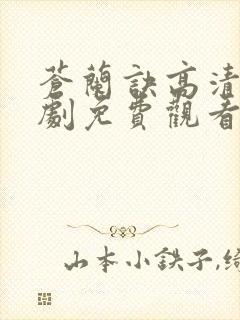 蒼蘭訣高清
劇免費觀看
山本小鉄子,綺